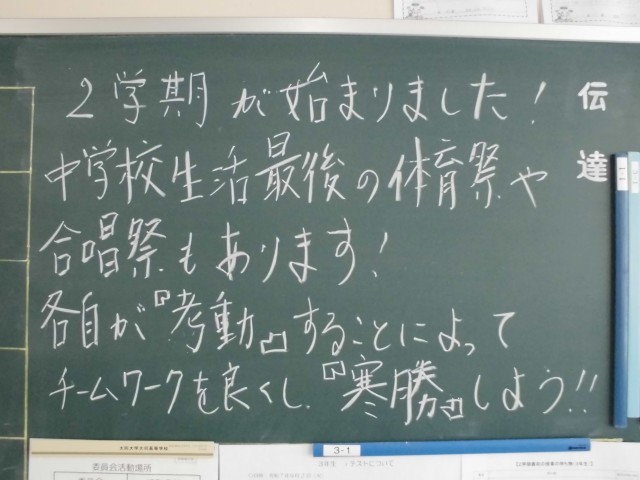 2学期が始まりました!
中学校生活最後の体育祭や
合唱祭もあります!
各自が『考動』することによって
チームワークを良くし『寒勝』しよう!!
伝達
3-1
委員会活動場所